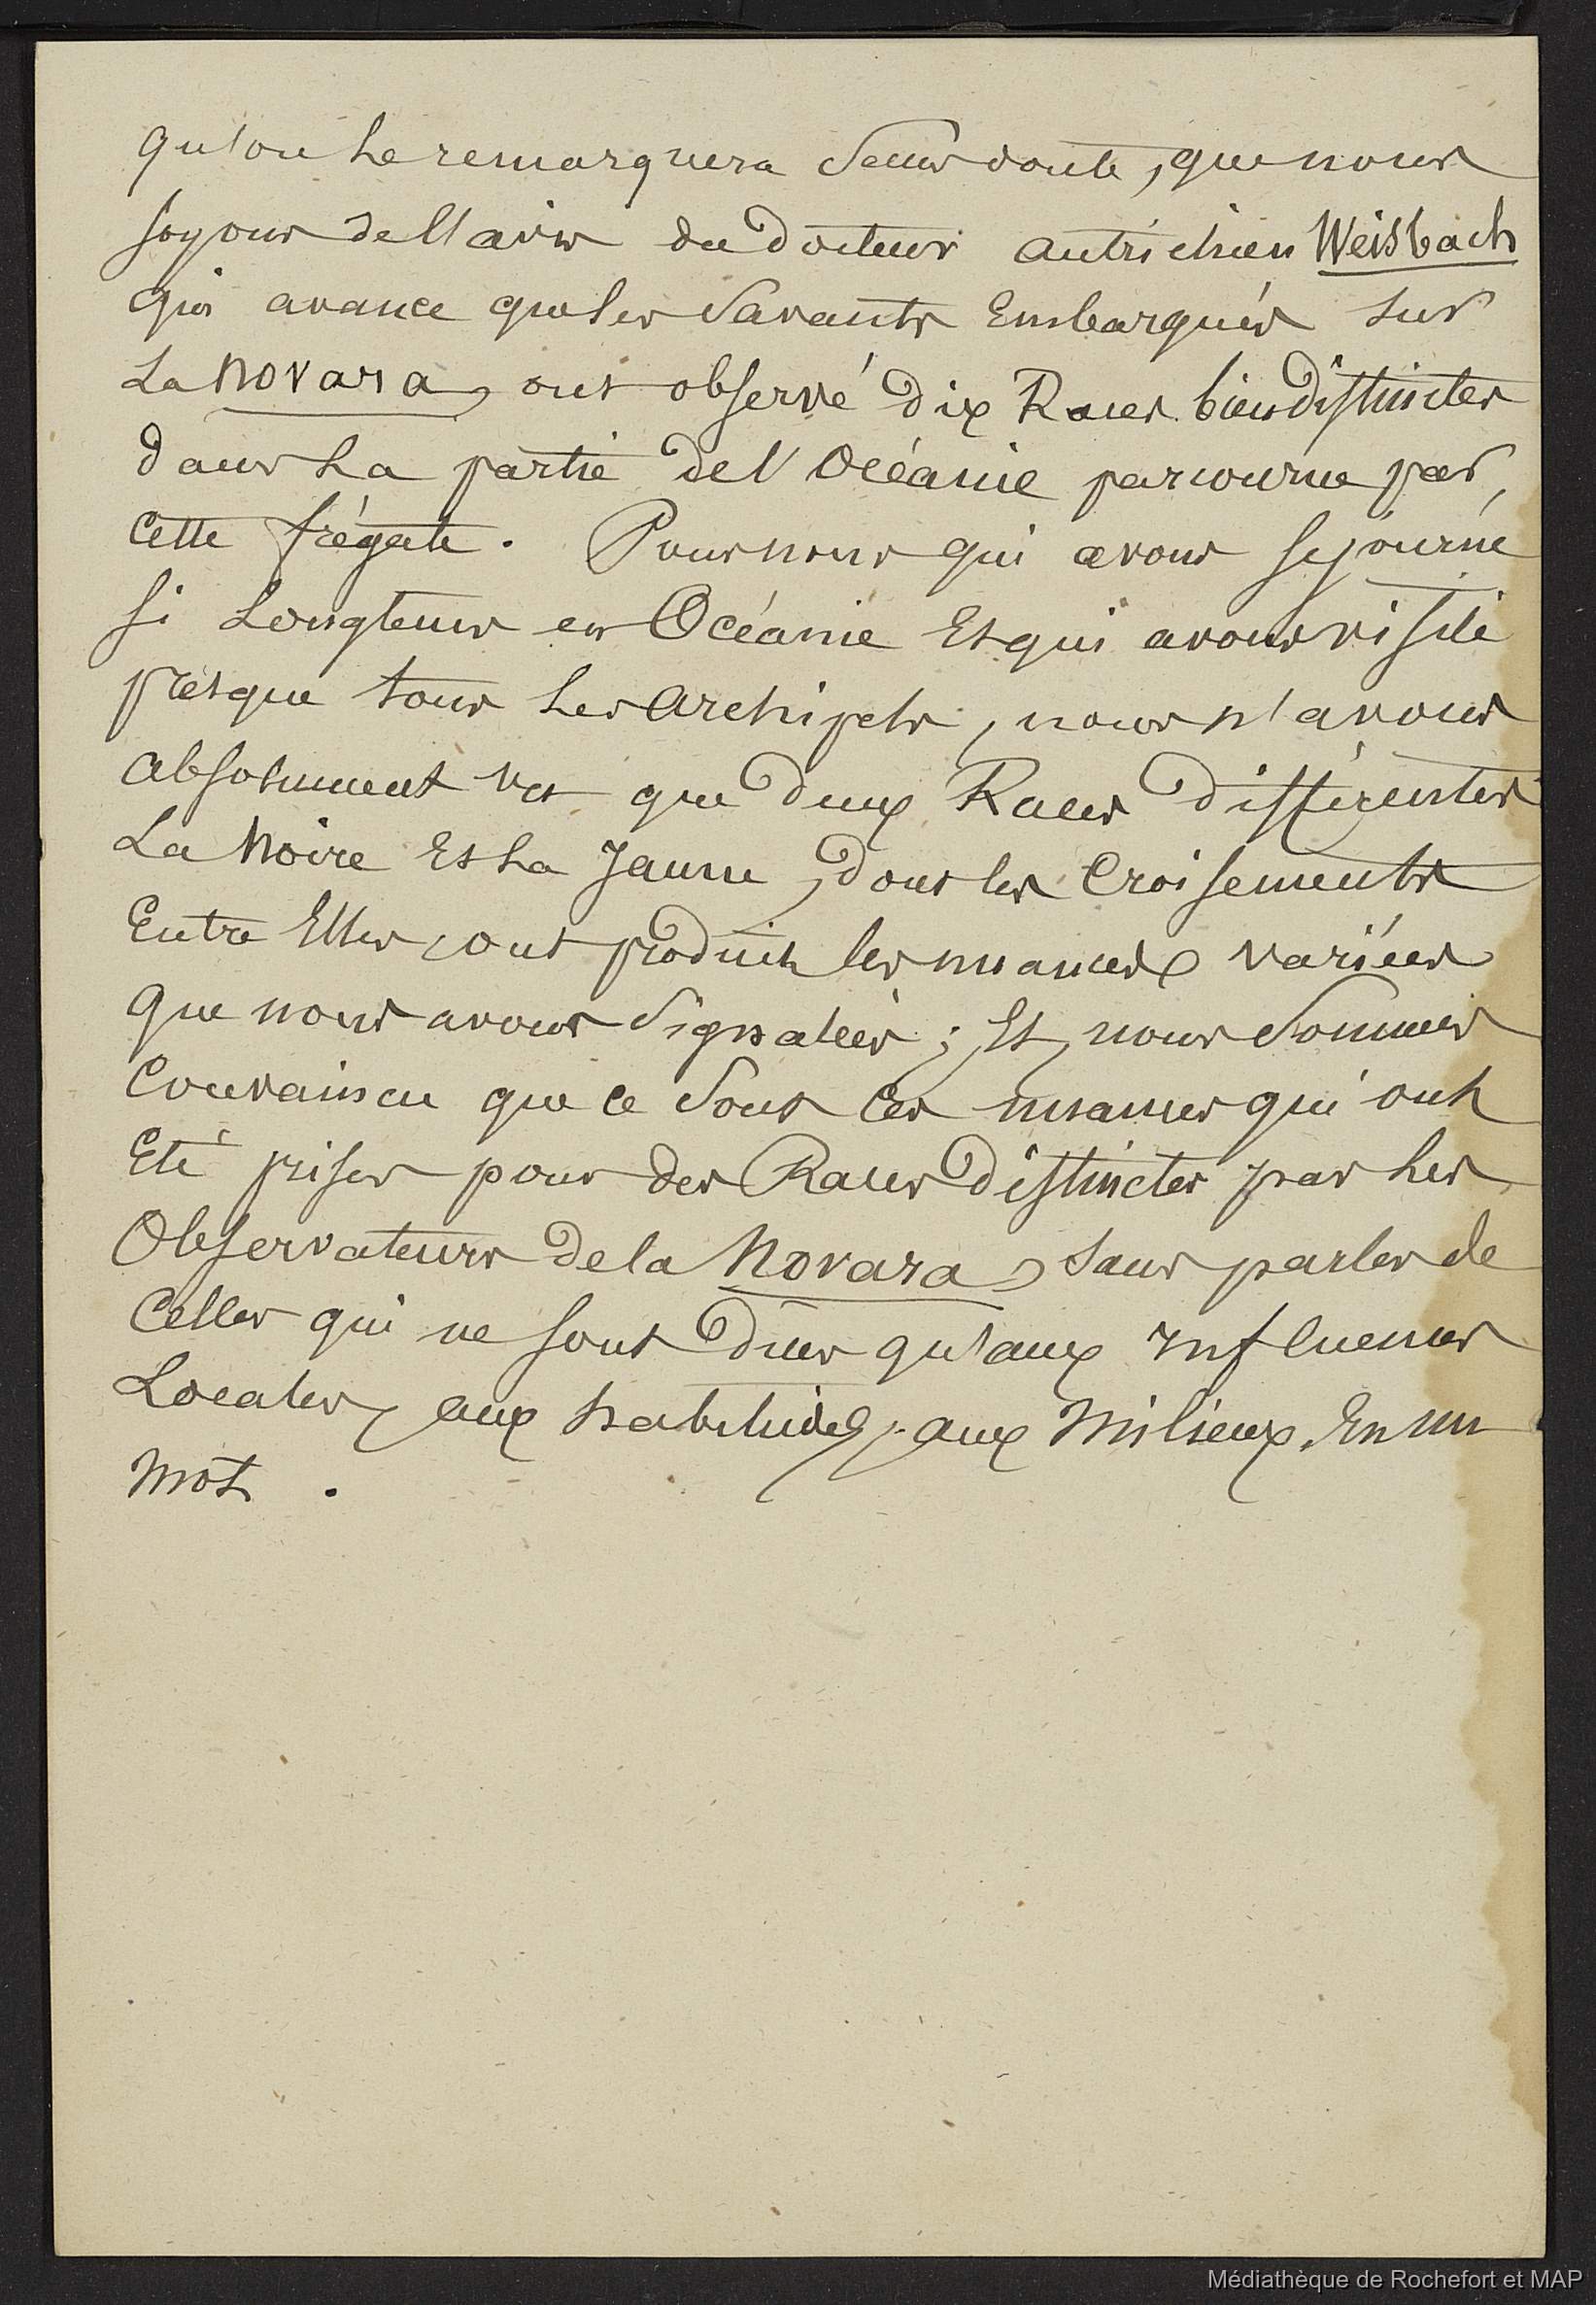 qu'on le remarquera sans doute, que nous
soyons de l'avis du docteur autrichien Weisbach
qui avance que les savants Embarqués sur
La Novara, ont observé dix Races bien distinctes
dans La partie de l'Océanie parcourue par
cette frégate. Pour nous qui avons séjourné
si Longtems en Océanie Et qui avons visité
presque tous Les Archipels, nous n'avons
absolument vu que deux Races différentes
La Noire Et La Jaune, dont les Croisements
Entre Elles, ont produit les nuances variées
que nous avons signalées; Et, nous sommes
Convaincu que ce sont ces nuances qui ont
Eté prises pour des Races distinctes par Les
Observateurs de la Novara, sans parler de
Celles qui ne sont dues qu'aux Influences
Locales, aux habitudes, aux Milieux, En un
Mot.
Médiathèque de Rochefort et MAP